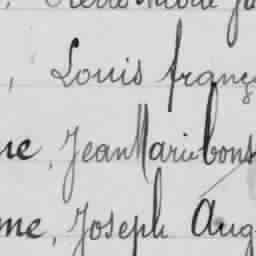 , Louis franç
ne, Jean Marie bons
me, Joseph Aug